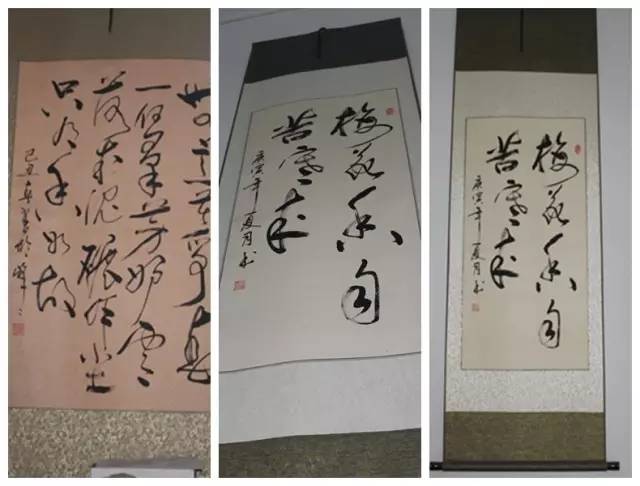 無意苦爭春
一任羣芳妒零
落成泥碾作尘
只有香如故
己丑春
梅花香自
苦寒来
庚寅年夏月书
梅花香自
苦寒来
庚寅年夏月书